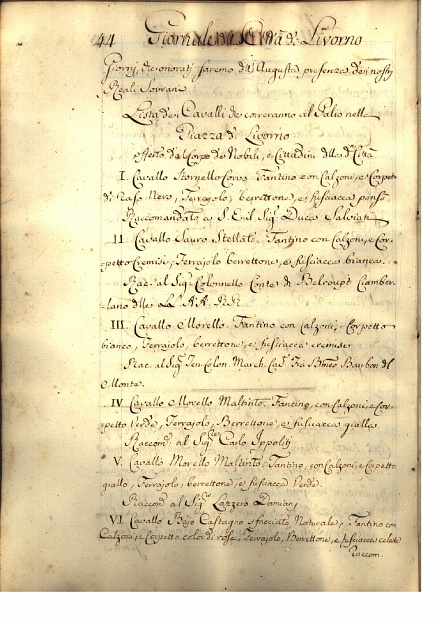 44 Giornale della Città di Livorno
Giorni, che onorati saremo dall' Augusta presenza dei nostri
Reali Sovrani
Lista dei Cavalli che correranno al Palio nella
Piazza di Livorno
offerto dal Corpo dei Nobili, e Cittadini della d. Città
I. Cavallo Stornello Fantino con Calzoni, e Corpetto
di Raso Nero, Ferrajolo, berrettone, e fusciacca
Raccomandato a S. E. il Sig. Duca Salviati
II. Cavallo Sauro Stellato. Fantino con Calzoni, e Cor-
petto Cremisi, Ferrajolo berrettone, e fusciacca bianca.
Rac. al Sig. Colonnello Conte di Belroupt Ciamber-
lano delle LL. AA. RR.
III. Cavallo Morello. Fantino con Calzoni, Corpetto
bianco, Ferrajolo, berrettone, e fusciacca cremisi
Rac. al Sig. Ten. Colon. March. Cav. Barbon del
Monte.
IV Cavallo Morello Maltinto. Fantino, con Calzoni, e Cor-
petto Verde, Ferrajolo, Berrettone, e fusciacca gialla
Raccom. al Sig. Carlo Ippoliti
V. Cavallo Morello Maltinto. Fantino, con Calzoni, e Corpetto
giallo, Ferrajolo, berrettone, e fusciacca Verde.
Raccom. al Sig. Lazzero Damiani
VI Cavallo Bajo Castagno sfacciato Naturale, Fantino con
Calzoni, e Corpetto color di rosa. Ferrajolo, Berrettone, e fusciacca celeste
Raccom.